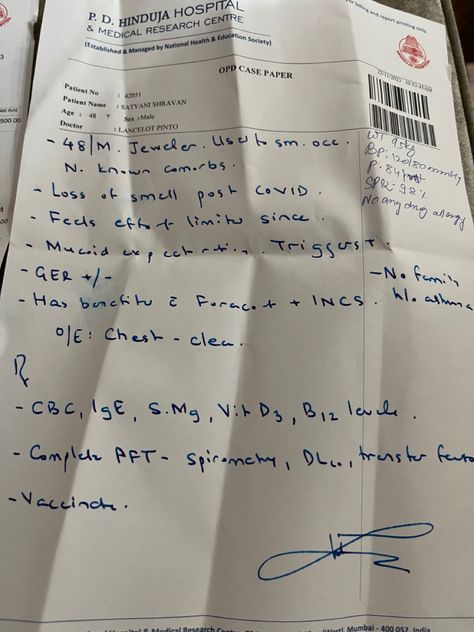 P. D. HINDUJA HOSPITAL
& MEDICAL RESEARCH CENTRE
(Established & Managed by National Health & Education Society)
billing and report printing only
OPD CASE PAPER
22/11/2023 10:53:45AM
Patient No : 42051
Patient Name : SATYANI SHRAVAN
Age : 48 Y Sex : Male
Doctor : LANCELOT PINTO
500.00
WT 95kg
BP: 120/80 mmHg
P: 84/
SPO2 98%
No any drug allergy
- 48/M. Jeweler. Used to sm. occ.
N. known comorbs.
- Loss of smell post COVID.
- Feels effort limits since.
- Mucoid expectoration. Triggers +.
- GER +/-
- No family h/o asthma
- Has benefits c̄ Foracort + INCS.
O/E: Chest - clear.
Rx
- CBC, IgE, S.Mg, Vit D3, B12 levels.
- Complete PFT - Spirometry, DLco, transfer factor
- Vaccinate.
Mumbai - 400 052, India